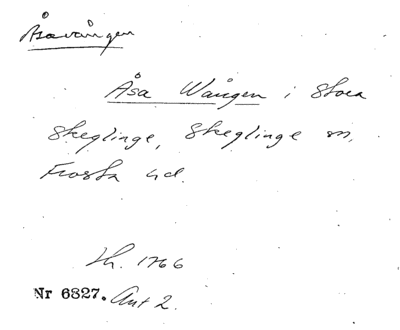 Åsavången
Åsa Wången i Stora
Skeglinge, Skeglinge sn,
Frosta hd.
Lh. 1766
Nr 6827. Ant 2.